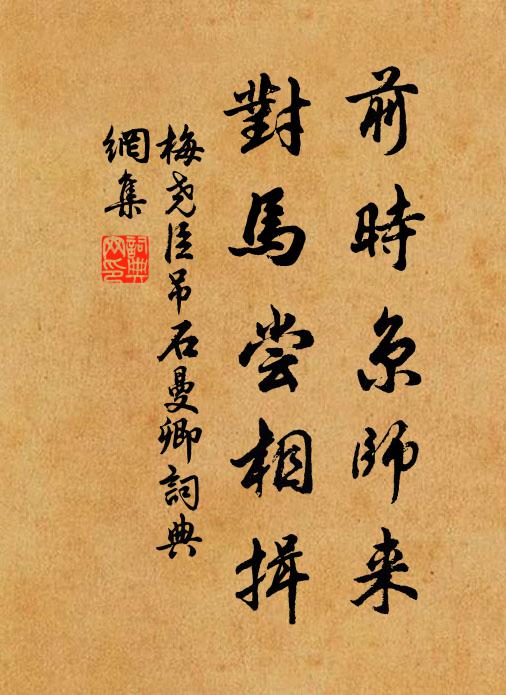 前時京師来
對馬尝相揖
梅尧臣吊石曼卿詞典
網集
詞典
网印